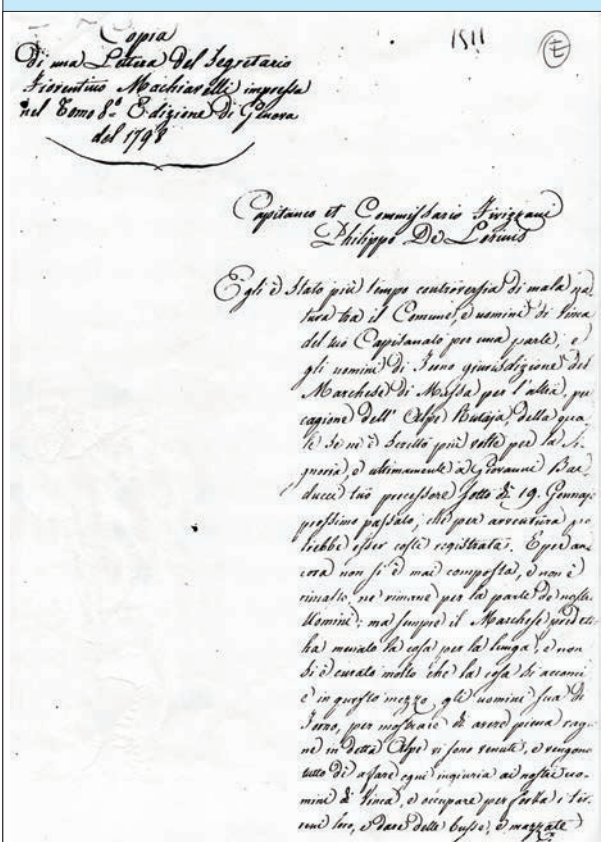 Copia
Di una Lettera Del Segretario
Fiorentino Machiavelli impressa
nel Tomo 8º Edizione Di Genova
del 1798
1511
E
Capitaneo et Commissario Fivizzani
Philippo De Lorinis
Egli è Stato più tempo controversia di mala na-
tura tra il Comune, e uomini di Vinca
del tuo Capitanato per una parte, e
gli uomini di Forno giurisdizione del
Marchese di Massa per l'altra, per
cagione dell' Alpe Rutaja, della qua-
le se ne è Scritto più volte per la Si-
gnoria, e ultimamente a Giovanni Bar-
ducci tuo precessore sotto dì 19. Gennajo
prossimo passato, che per avventura po
trebbe esser costì registrata. E per an-
cora non si è mai composta, e non è
rimasto, ne rimane per la parte de' nostri
Uomini; ma sempre il Marchese predetto
ha menato la cosa per la lunga, e non
si è curato molto che la cosa si acconci
e in questo mezzo gli uomini sua di
Forno, per mostrare di avere piena ragio-
ne in detta Alpe vi sono venuti, e vengono
tutto dì a fare ogni ingiuria ai nostri uo-
mini di Vinca, e occupare per forza i ter-
reni loro, e dare delle busse, e mazzate